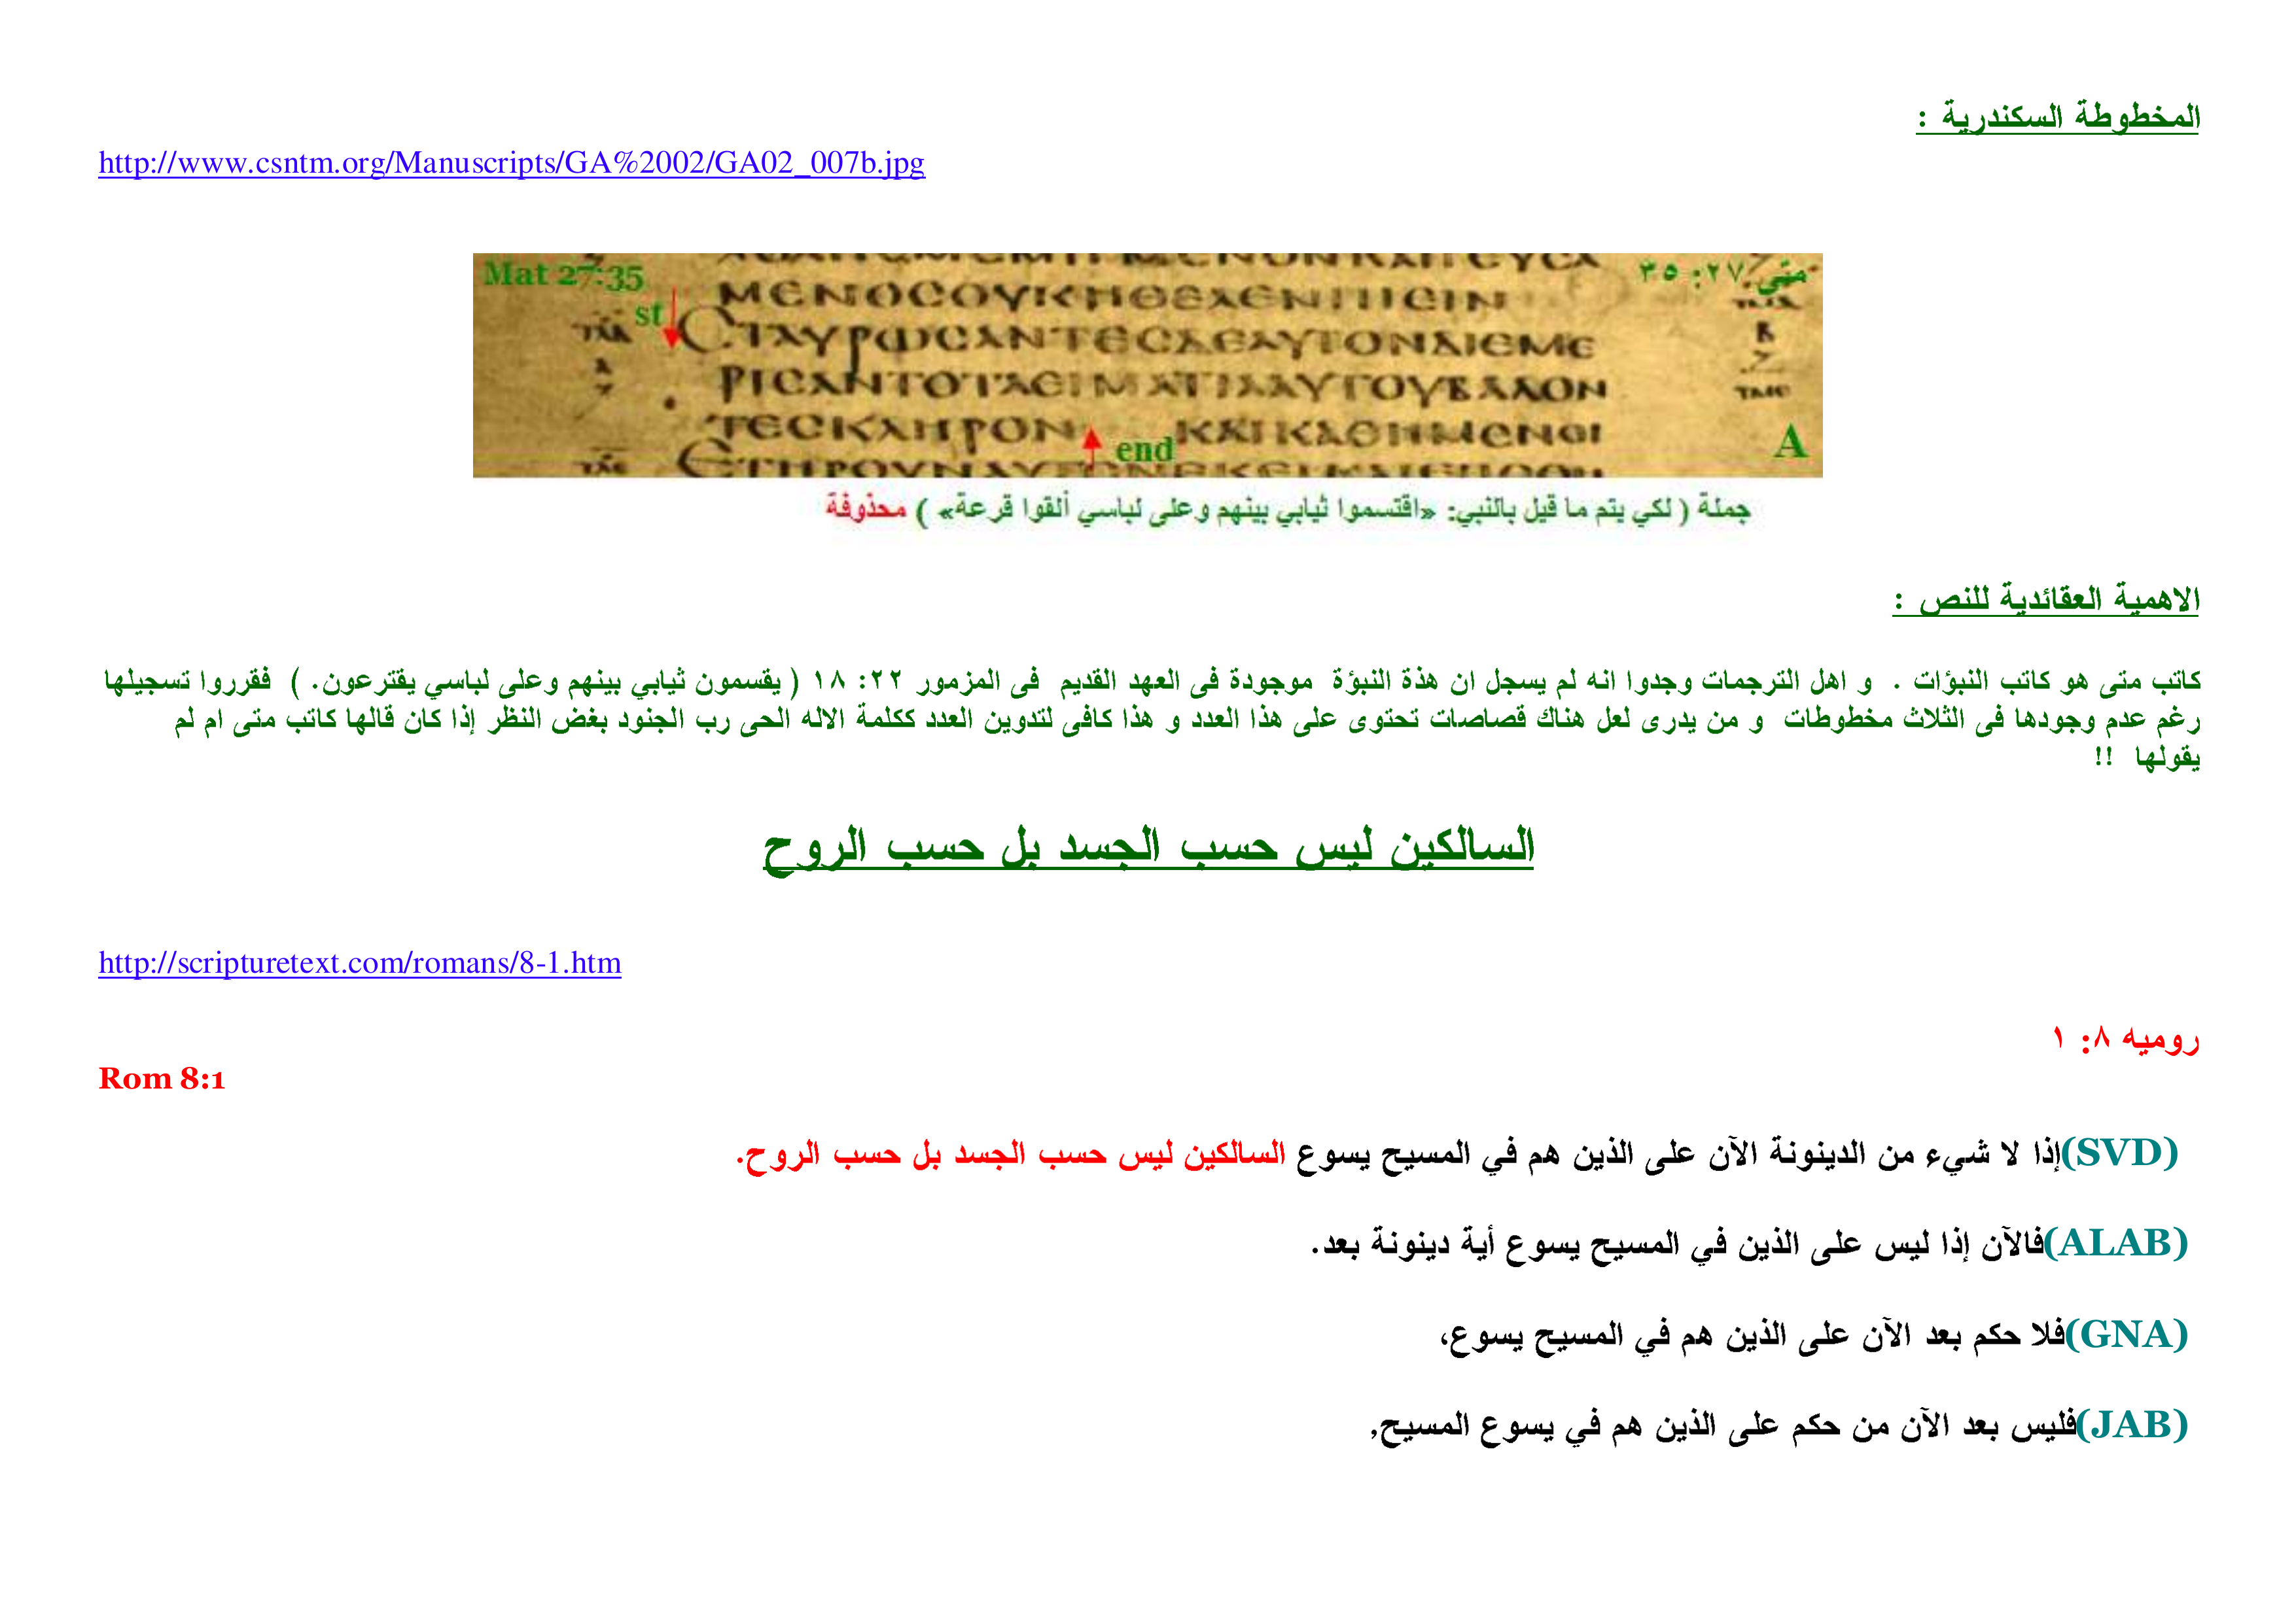 المخطوطة السكندرية :
http://www.csntm.org/Manuscripts/GA%2002/GA02_007b.jpg
Mat 27:35
متى ٢٧: ٣٥
ΜΕΝΟCΟΥΚΗΘΕΛΕΝΠΙΕΙΝ
st
CΤΑΥΡΩCΑΝΤΕCΔΕΑΥΤΟΝΔΙΕΜΕ
ΡΙCΑΝΤΟΤΑΕΙΜΑΤΙΑΑΥΤΟΥΒΑΛΟΝ
ΤΕCΚΛΗΡΟΝ ΚΑΙ ΚΑΘΗΜΕΝΟΙ
end
A
جملة ( لكي يتم ما قيل بالنبي: «اقتسموا ثيابي بينهم وعلى لباسي ألقوا قرعة» ) محذوفة
الاهمية العقائدية للنص :
كاتب متى هو كاتب النبؤات . و اهل الترجمات وجدوا انه لم يسجل ان هذة النبؤة موجودة فى العهد القديم فى المزمور ٢٢: ١٨ ( يقسمون ثيابي بينهم وعلى لباسي يقترعون. ) فقرروا تسجيلها
رغم عدم وجودها فى الثلاث مخطوطات و من يدرى لعل هناك قصاصات تحتوى على هذا العدد و هذا كافى لتدوين العدد ككلمة الاله الحى رب الجنود بغض النظر إذا كان قالها كاتب متى ام لم
يقولها !!
السالكين ليس حسب الجسد بل حسب الروح
http://scripturetext.com/romans/8-1.htm
روميه ٨: ١
Rom 8:1
(SVD)إذا لا شيء من الدينونة الآن على الذين هم في المسيح يسوع السالكين ليس حسب الجسد بل حسب الروح.
(ALAB)فالآن إذا ليس على الذين في المسيح يسوع أية دينونة بعد.
(GNA)فلا حكم بعد الآن على الذين هم في المسيح يسوع،
(JAB)فليس بعد الآن من حكم على الذين هم في يسوع المسيح,